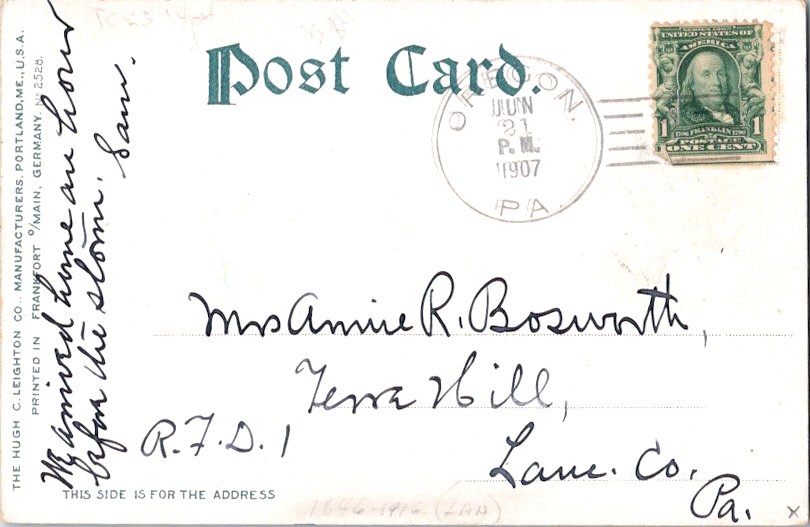 Post Card.
OREGON.
JUN
21
P. M.
1907
PA.
SERIES 1902
UNITED STATES OF
AMERICA
1706 FRANKLIN 1790
1 1
POSTAGE
ONE CENT
Mrs Annie R. Bosworth,
Terre Hill,
R.F.D. 1
Lanc. Co.
Pa.
THIS SIDE IS FOR THE ADDRESS
We arrived home an hour
before the storm. Sam.
THE HUGH C. LEIGHTON CO., MANUFACTURERS, PORTLAND, ME., U.S.A.
PRINTED IN FRANKFORT O/MAIN, GERMANY. No 2528.
1846-1916 (LAN)
x